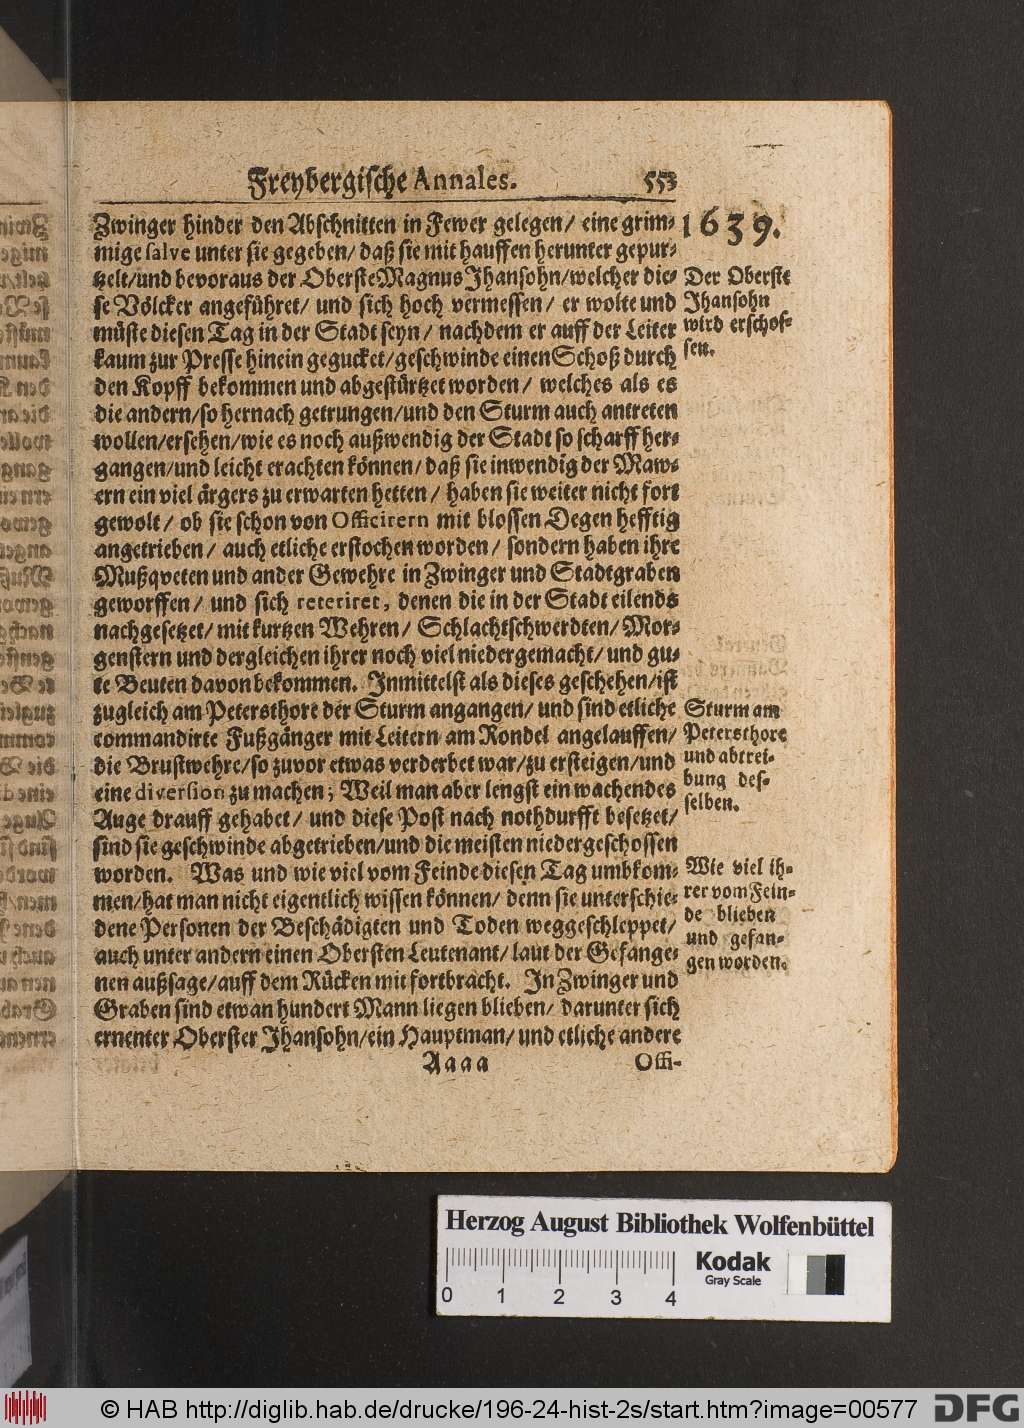 Freybergische Annales. 553
1639.
Zwinger hinder den Abschnitten in Fewer gelegen/ eine grim-
mige salve unter sie gegeben/ daß sie mit hauffen herunter gepur-
tzelt/und bevoraus der Oberste Magnus Jhansohn/welcher die-
se Völcker angeführet/ und sich hoch vermessen/ er wolte und
müste diesen Tag in der Stadt seyn/ nachdem er auff der Leiter
kaum zur Presse hinein gegucket/geschwinde einen Schoß durch
den Kopff bekommen und abgestürtzet worden/ welches als es
die andern/so hernach getrungen/und den Sturm auch antreten
wollen/ersehen/wie es noch außwendig der Stadt so scharff her-
gangen/und leicht erachten können/ daß sie inwendig der Maw-
ern ein viel ärgers zu erwarten hetten/ haben sie weiter nicht fort
gewolt/ ob sie schon von Officirern mit blossen Degen hefftig
angetrieben/ auch etliche erstochen worden/ sondern haben ihre
Mußqveten und ander Gewehre in Zwinger und Stadtgraben
geworffen/ und sich reteriret, denen die in der Stadt eilends
nachgesetzet/ mit kurtzen Wehren/ Schlachtschwerdten/ Mor-
genstern und dergleichen ihrer noch viel niedergemacht/ und gu-
te Beuten davon bekommen. Inmittelst als dieses geschehen/ist
zugleich am Petersthore der Sturm angangen/ und sind etliche
commandirte Fußgänger mit Leitern am Rondel angelauffen/
die Brustwehre/so zuvor etwas verderbet war/zu ersteigen/und
eine diversion zu machen; Weil man aber lengst ein wachendes
Auge drauff gehabet/ und diese Post nach nothdurfft besetzet/
sind sie geschwinde abgetrieben/und die meisten niedergeschossen
worden. Was und wie viel vom Feinde diesen Tag umbkom-
men/hat man nicht eigentlich wissen können/ denn sie unterschie-
dene Personen der Beschädigten und Toden weggeschleppet/
auch unter andern einen Obersten Leutenant/ laut der Gefange-
nen außsage/auff dem Rücken mit fortbracht. In Zwinger und
Graben sind etwan hundert Mann liegen blieben/ darunter sich
ernenter Oberster Jhansohn/ein Hauptman/ und etliche andere
Aaaa Offi-
Der Oberste
Jhansohn
wird erschos-
sen.
Sturm am
Petersthore
und abtrei-
bung des-
selben.
Wie viel ih-
rer vom Fein-
de blieben
und gefan-
gen worden.
Herzog August Bibliothek Wolfenbüttel
Kodak
Gray Scale
0 1 2 3 4
© HAB http://diglib.hab.de/drucke/196-24-hist-2s/start.htm?image=00577
DFG